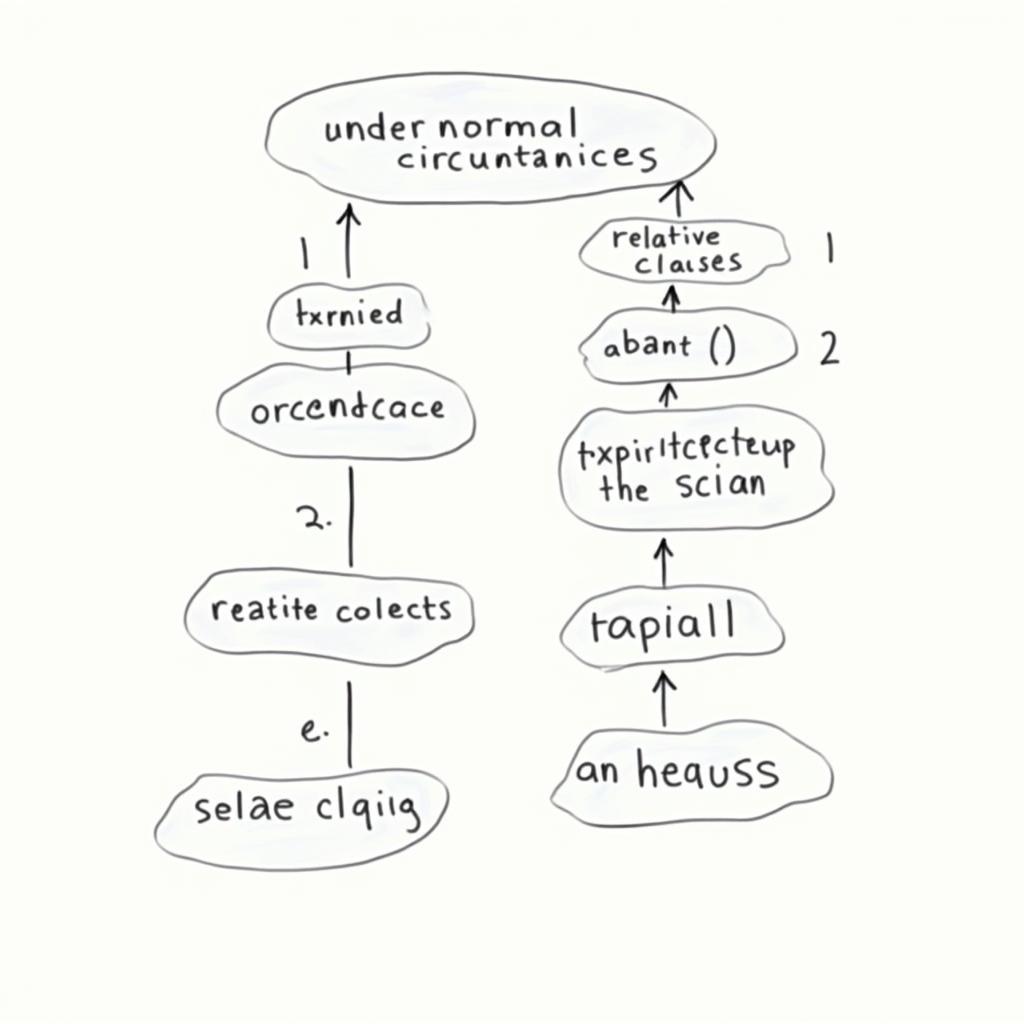 under normal
circuntanices
1
txrnied
orcendcace
2.
reatite colects
e.
selae clqiig
relative
clauses
1
abant ()
2
txpirltcecteup
the scian
tapiall
an heauss